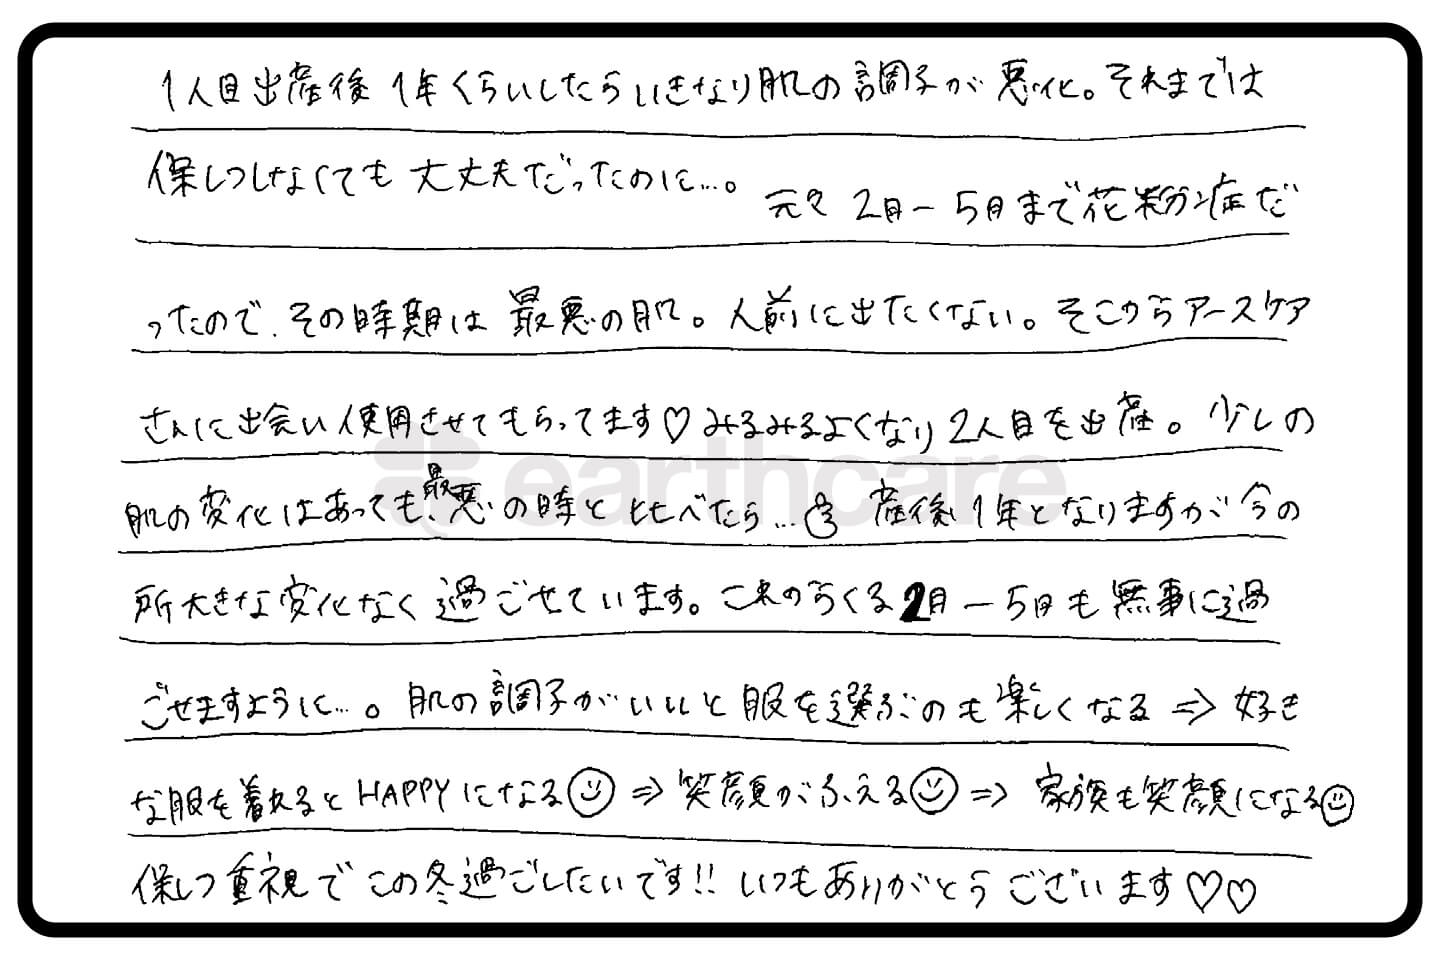 1人目出産後1年くらいしたらいきなり肌の調子が悪化。それまでは
保しつしなくても大丈夫だったのに…。元々2月ー5月まで花粉症だ
ったので、その時期は最悪の肌。人前に出たくない。そこからアースケア
さんに出会い使用させてもらってます♡みるみるよくなり2人目を出産。少しの
肌の変化はあっても、最悪の時と比べたら…👌産後1年となりますが今の
所大きな変化なく過ごせています。これからくる2月ー5月も無事に過
ごせますように…。肌の調子がいいと服を選ぶのも楽しくなる⇒好き
な服を着れるとHAPPYになる☺⇒笑顔がふえる☺⇒家族も笑顔になる☺
保しつ重視でこの冬過ごしたいです!!いつもありがとうございます♡♡
earthcare